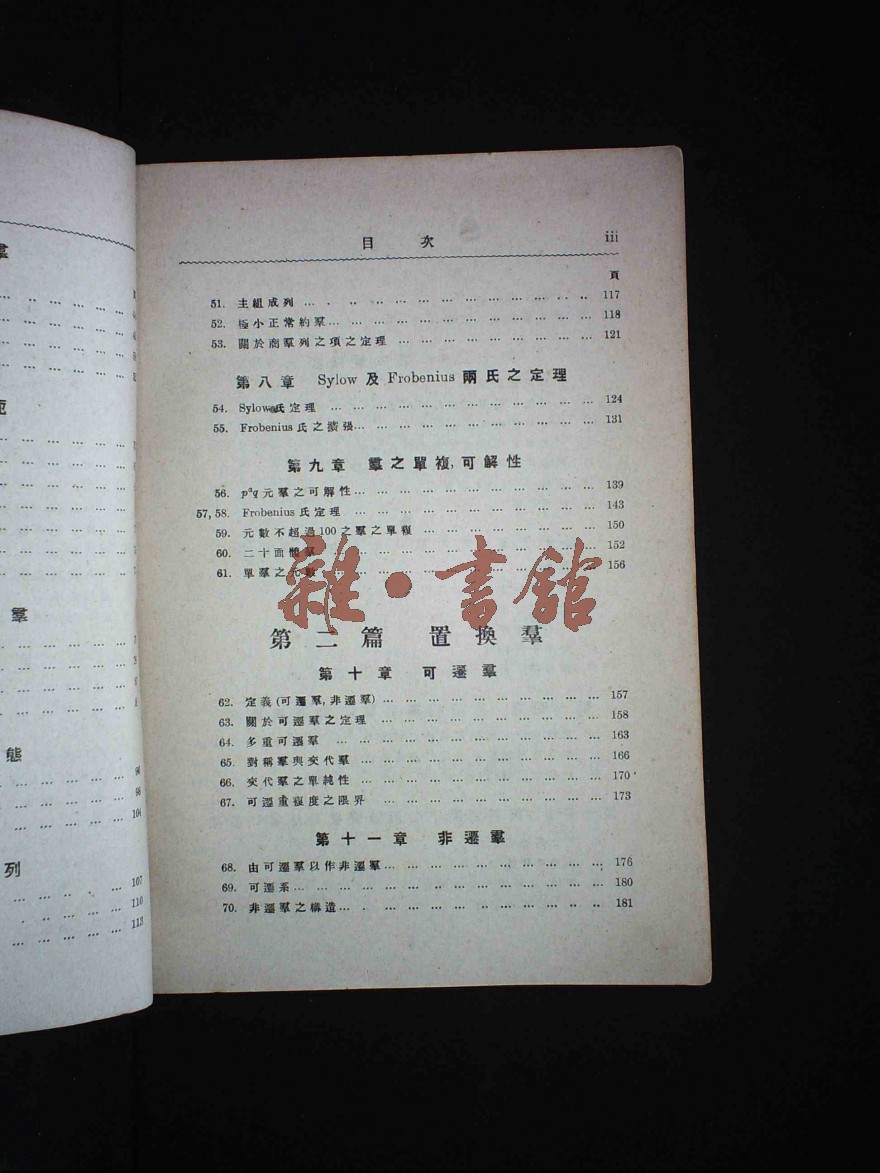 羣
態
104
列
107
110
113
目 次 iii
頁
51. 主組成列 … 117
52. 極小正常約羣 … 118
53. 關於商羣列之項之定理 … 121
第八章 Sylow 及 Frobenius 兩氏之定理
54. Sylow氏定理 … 124
55. Frobenius 氏之擴張 … 131
第九章 羣之單複,可解性
56. pᵃq 元羣之可解性 … 139
57, 58. Frobenius 氏定理 … 143
59. 元數不超過100之羣之單複 … 150
60. 二十面體羣 … 152
61. 單羣之元數 … 156
雜・書館
第二篇 置換羣
第十章 可遷羣
62. 定義(可遷羣,非遷羣) … 157
63. 關於可遷羣之定理 … 158
64. 多重可遷羣 … 163
65. 對稱羣與交代羣 … 166
66. 交代羣之單純性 … 170
67. 可遷重複度之限界 … 173
第十一章 非遷羣
68. 由可遷羣以作非遷羣 … 176
69. 可遷系 … 180
70. 非遷羣之構造 … 181